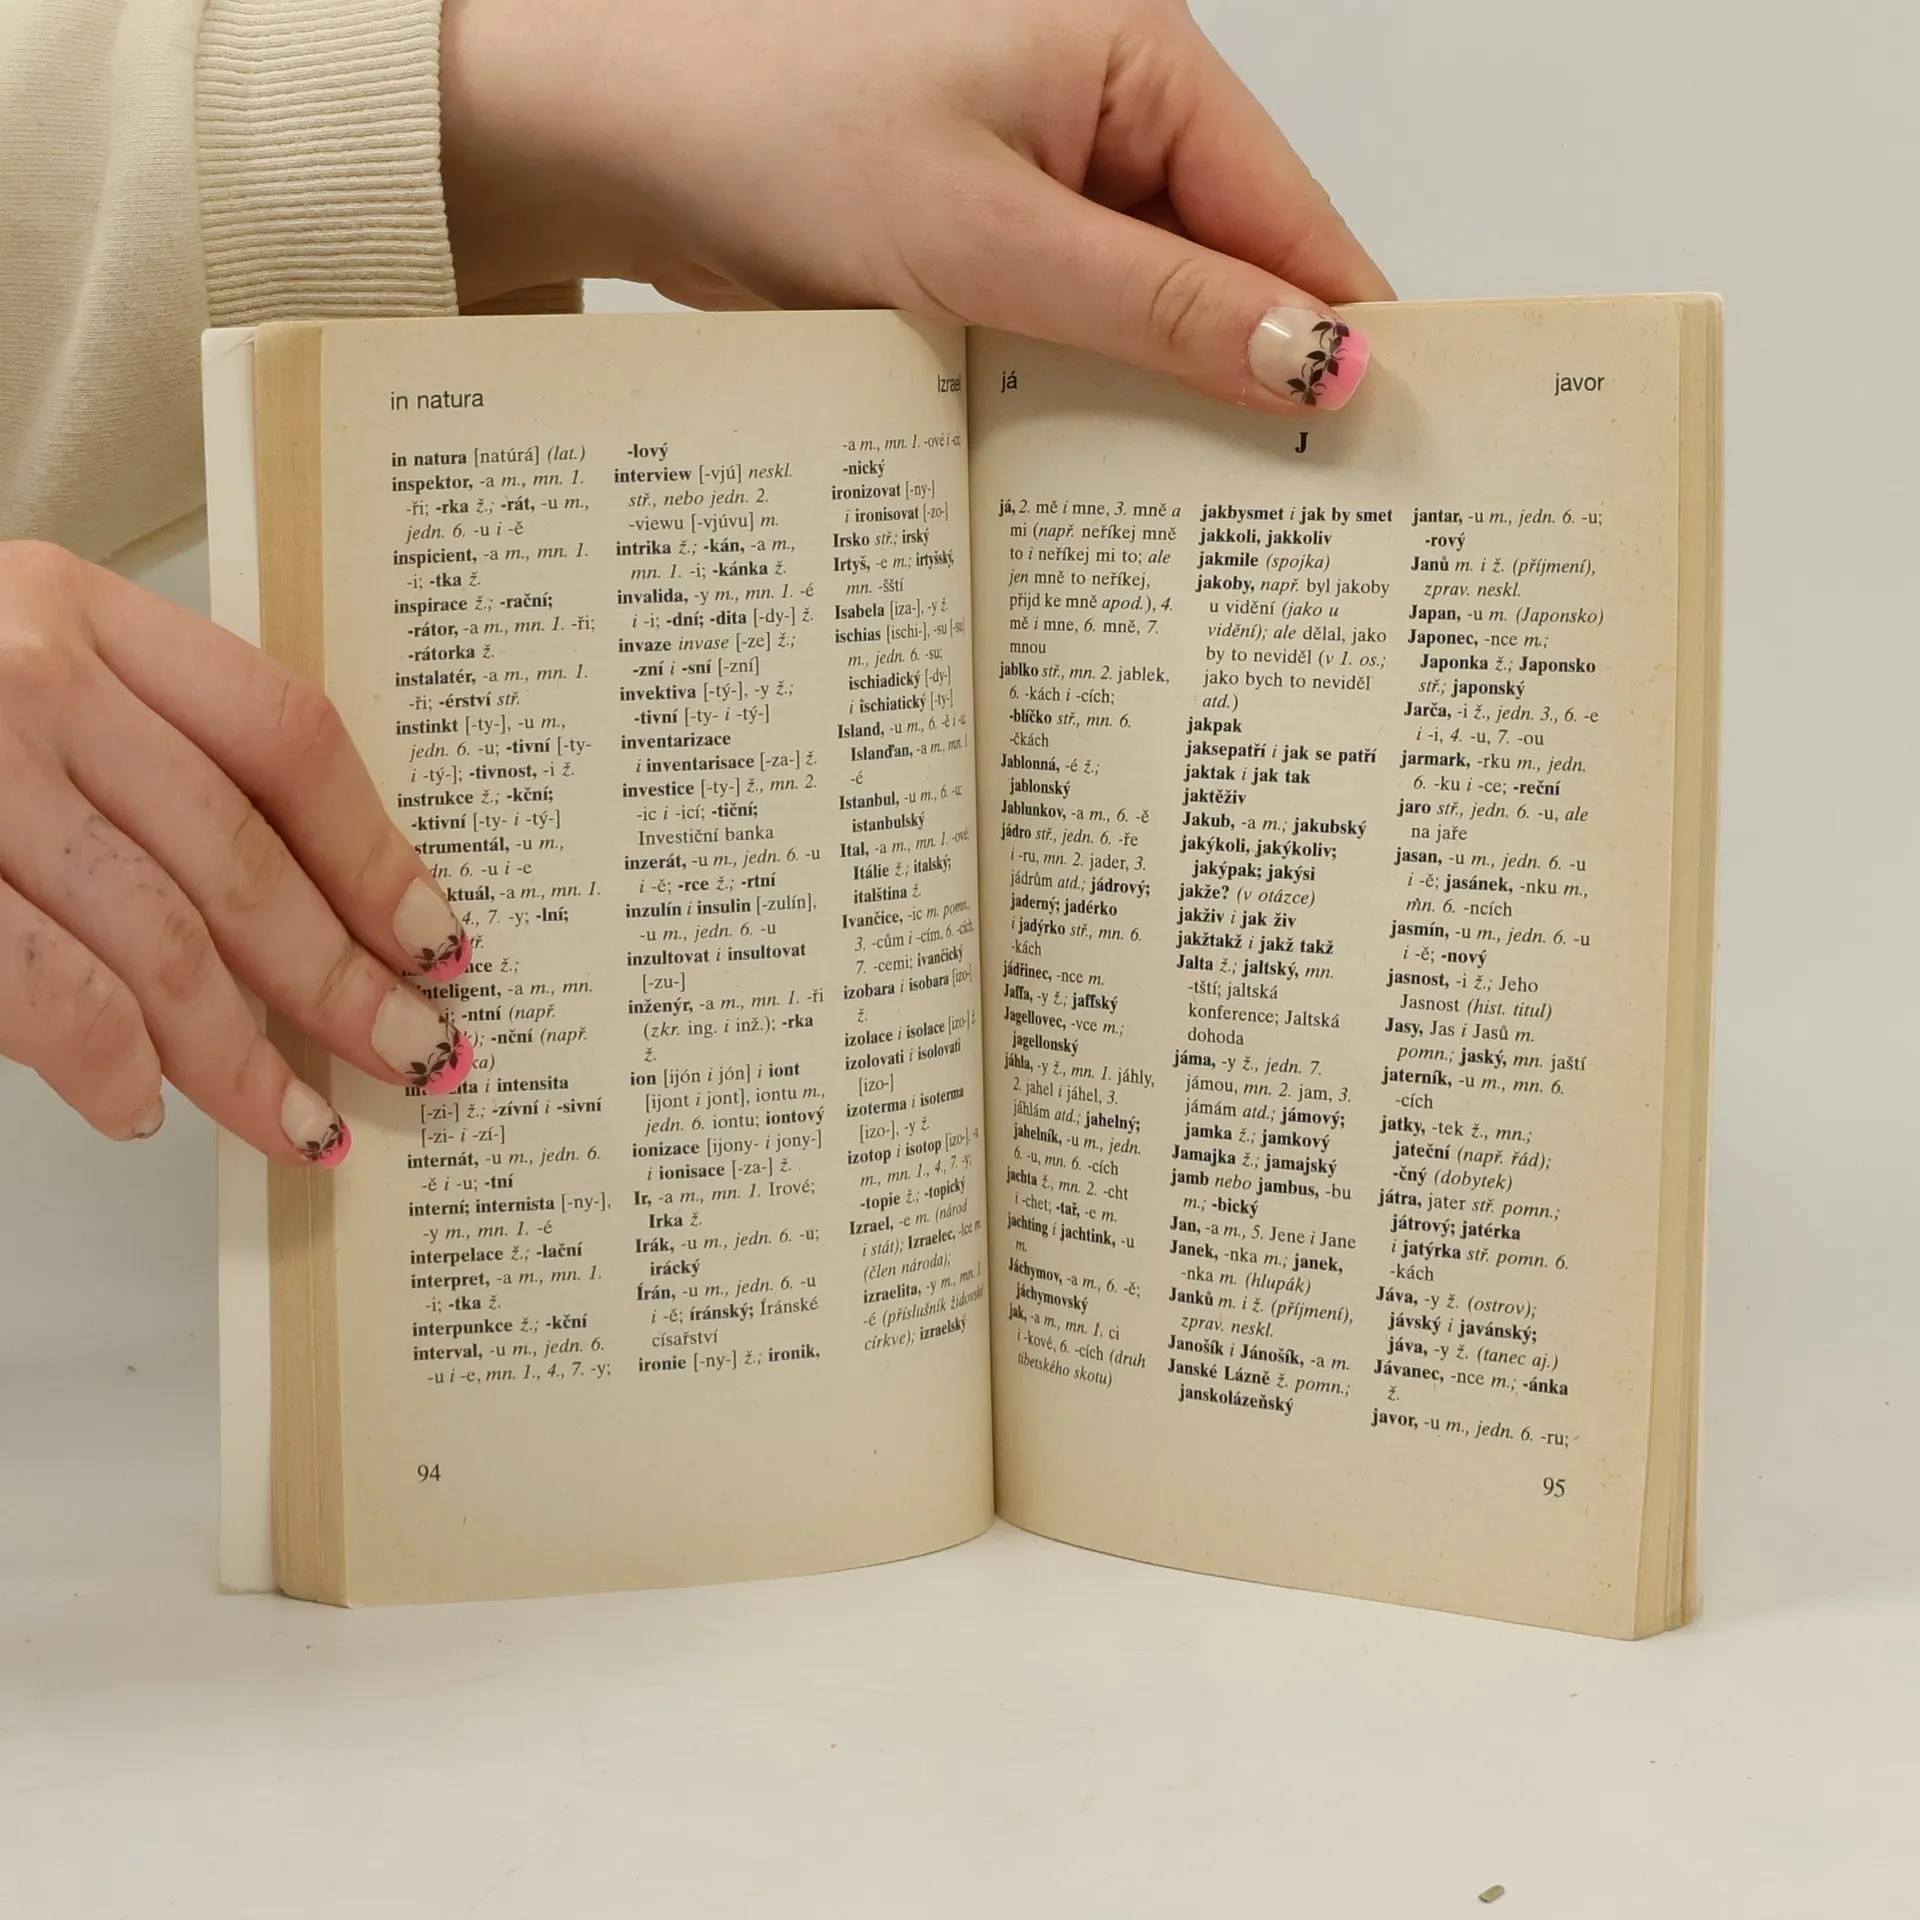 in natura
in natura [natúrá] (lat.)
inspektor, -a m., mn. 1.
-ři; -rka ž.; -rát, -u m.,
jedn. 6. -u i -ě
inspicient, -a m., mn. 1.
-i; -tka ž.
inspirace ž.; -rační;
-rátor, -a m., mn. 1. -ři;
-rátorka ž.
instalatér, -a m., mn. 1.
-ři; -érství stř.
instinkt [-ty-], -u m.,
jedn. 6. -u; -tivní [-ty-
i -tý-]; -tivnost, -i ž.
instrukce ž.; -kční;
-ktivní [-ty- i -tý-]
strumentál, -u m.,
dn. 6. -u i -e
ktuál, -a m., mn. 1.
4., 7. -y; -lní;
tř.
nce ž.;
inteligent, -a m., mn.
i; -ntní (např.
); -nční (např.
ka)
i intensita
[-zi-] ž.; -zívní i -sivní
[-zi- i -zí-]
internát, -u m., jedn. 6.
-ě i -u; -tní
interní; internista [-ny-],
-y m., mn. 1. -é
interpelace ž.; -lační
interpret, -a m., mn. 1.
-i; -tka ž.
interpunkce ž.; -kční
interval, -u m., jedn. 6.
-u i -e, mn. 1., 4., 7. -y;
-lový
interview [-vjú] neskl.
stř., nebo jedn. 2.
-viewu [-vjúvu] m.
intrika ž.; -kán, -a m.,
mn. 1. -i; -kánka ž.
invalida, -y m., mn. 1. -é
i -i; -dní; -dita [-dy-] ž.
invaze invase [-ze] ž.;
-zní i -sní [-zní]
invektiva [-tý-], -y ž.;
-tivní [-ty- i -tý-]
inventarizace
i inventarisace [-za-] ž.
investice [-ty-] ž., mn. 2.
-ic i -icí; -tiční;
Investiční banka
inzerát, -u m., jedn. 6. -u
i -ě; -rce ž.; -rtní
inzulín i insulin [-zulín],
-u m., jedn. 6. -u
inzultovat i insultovat
[-zu-]
inženýr, -a m., mn. 1. -ři
(zkr. ing. i inž.); -rka
ž.
ion [ijón i jón] i iont
[ijont i jont], iontu m.,
jedn. 6. iontu; iontový
ionizace [ijony- i jony-]
i ionisace [-za-] ž.
Ir, -a m., mn. 1. Irové;
Irka ž.
Irák, -u m., jedn. 6. -u;
irácký
Írán, -u m., jedn. 6. -u
i -ě; íránský; Íránské
císařství
ironie [-ny-] ž.; ironik,
Izrael
-a m., mn. 1. -ové i -ci
-nický
ironizovat [-ny-]
i ironisovat [-zo-]
Irsko stř.; irský
Irtyš, -e m.; irtyšský,
mn. -šští
Isabela [iza-], -y ž.
ischias [ischi-], -su [-su]
m., jedn. 6. -su;
ischiadický [-dy-]
i ischiatický [-ty-]
Island, -u m., 6. -ě i -u;
Islanďan, -a m., mn. 1.
-é
Istanbul, -u m., 6. -u;
istanbulský
Ital, -a m., mn. 1. -ové;
Itálie ž.; italský;
italština ž.
Ivančice, -ic m. pomn.,
3. -cům i -cím, 6. -cích,
7. -cemi; ivančický
izobara i isobara [izo-]
ž.
izolace i isolace [izo-] ž.
izolovati i isolovati
[izo-]
izoterma i isoterma
[izo-], -y ž.
izotop i isotop [izo-], -u
m., mn. 1., 4., 7. -y;
-topie ž.; -topický
Izrael, -e m. (národ
i stát); Izraelec, -lce m.
(člen národa);
izraelita, -y m., mn. 1.
-é (příslušník židovské
církve); izraelský
94
já
javor
J
já, 2. mě i mne, 3. mně a
mi (např. neříkej mně
to i neříkej mi to; ale
jen mně to neříkej,
přijd ke mně apod.), 4.
mě i mne, 6. mně, 7.
mnou
jablko stř., mn. 2. jablek,
6. -kách i -cích;
-blíčko stř., mn. 6.
-čkách
Jablonná, -é ž.;
jablonský
Jablunkov, -a m., 6. -ě
jádro stř., jedn. 6. -ře
i -ru, mn. 2. jader, 3.
jádrům atd.; jádrový;
jaderný; jadérko
i jadýrko stř., mn. 6.
-kách
jádřinec, -nce m.
Jaffa, -y ž.; jaffský
Jagellovec, -vce m.;
jagellonský
jáhla, -y ž., mn. 1. jáhly,
2. jahel i jáhel, 3.
jáhlám atd.; jahelný;
jahelník, -u m., jedn.
6. -u, mn. 6. -cích
jachta ž., mn. 2. -cht
i -chet; -tař, -e m.
jachting i jachtink, -u
m.
Jáchymov, -a m., 6. -ě;
jáchymovský
jak, -a m., mn. 1. ci
i -kové, 6. -cích (druh
tibetského skotu)
jakbysmet i jak by smet
jakkoli, jakkoliv
jakmile (spojka)
jakoby, např. byl jakoby
u vidění (jako u
vidění); ale dělal, jako
by to neviděl (v 1. os.;
jako bych to neviděl
atd.)
jakpak
jaksepatří i jak se patří
jaktak i jak tak
jaktěživ
Jakub, -a m.; jakubský
jakýkoli, jakýkoliv;
jakýpak; jakýsi
jakže? (v otázce)
jakživ i jak živ
jakžtakž i jakž takž
Jalta ž.; jaltský, mn.
-tští; jaltská
konference; Jaltská
dohoda
jáma, -y ž., jedn. 7.
jámou, mn. 2. jam, 3.
jámám atd.; jámový;
jamka ž.; jamkový
Jamajka ž.; jamajský
jamb nebo jambus, -bu
m.; -bický
Jan, -a m., 5. Jene i Jane
Janek, -nka m.; janek,
-nka m. (hlupák)
Janků m. i ž. (příjmení),
zprav. neskl.
Janošík i Jánošík, -a m.
Janské Lázně ž. pomn.;
janskolázeňský
jantar, -u m., jedn. 6. -u;
-rový
Janů m. i ž. (příjmení),
zprav. neskl.
Japan, -u m. (Japonsko)
Japonec, -nce m.;
Japonka ž.; Japonsko
stř.; japonský
Jarča, -i ž., jedn. 3., 6. -e
i -i, 4. -u, 7. -ou
jarmark, -rku m., jedn.
6. -ku i -ce; -reční
jaro stř., jedn. 6. -u, ale
na jaře
jasan, -u m., jedn. 6. -u
i -ě; jasánek, -nku m.,
mn. 6. -ncích
jasmín, -u m., jedn. 6. -u
i -ě; -nový
jasnost, -i ž.; Jeho
Jasnost (hist. titul)
Jasy, Jas i Jasů m.
pomn.; jaský, mn. jaští
jaterník, -u m., mn. 6.
-cích
jatky, -tek ž., mn.;
jateční (např. řád);
-čný (dobytek)
játra, jater stř. pomn.;
játrový; jatérka
i jatýrka stř. pomn. 6.
-kách
Jáva, -y ž. (ostrov);
jávský i javánský;
jáva, -y ž. (tanec aj.)
Jávanec, -nce m.; -ánka
ž.
javor, -u m., jedn. 6. -ru;
95